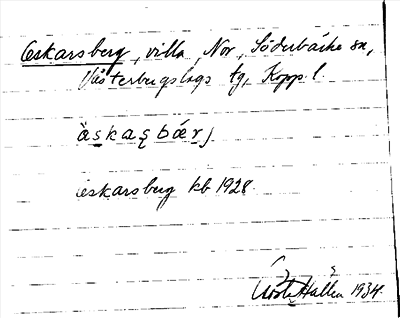 Oskarsberg, villa, Nor, Söderbärke sn,
Västerbergslags tg, Kopp. l.
åskaṣbærj
oskarsberg kb 1928.
Hallén 1934.